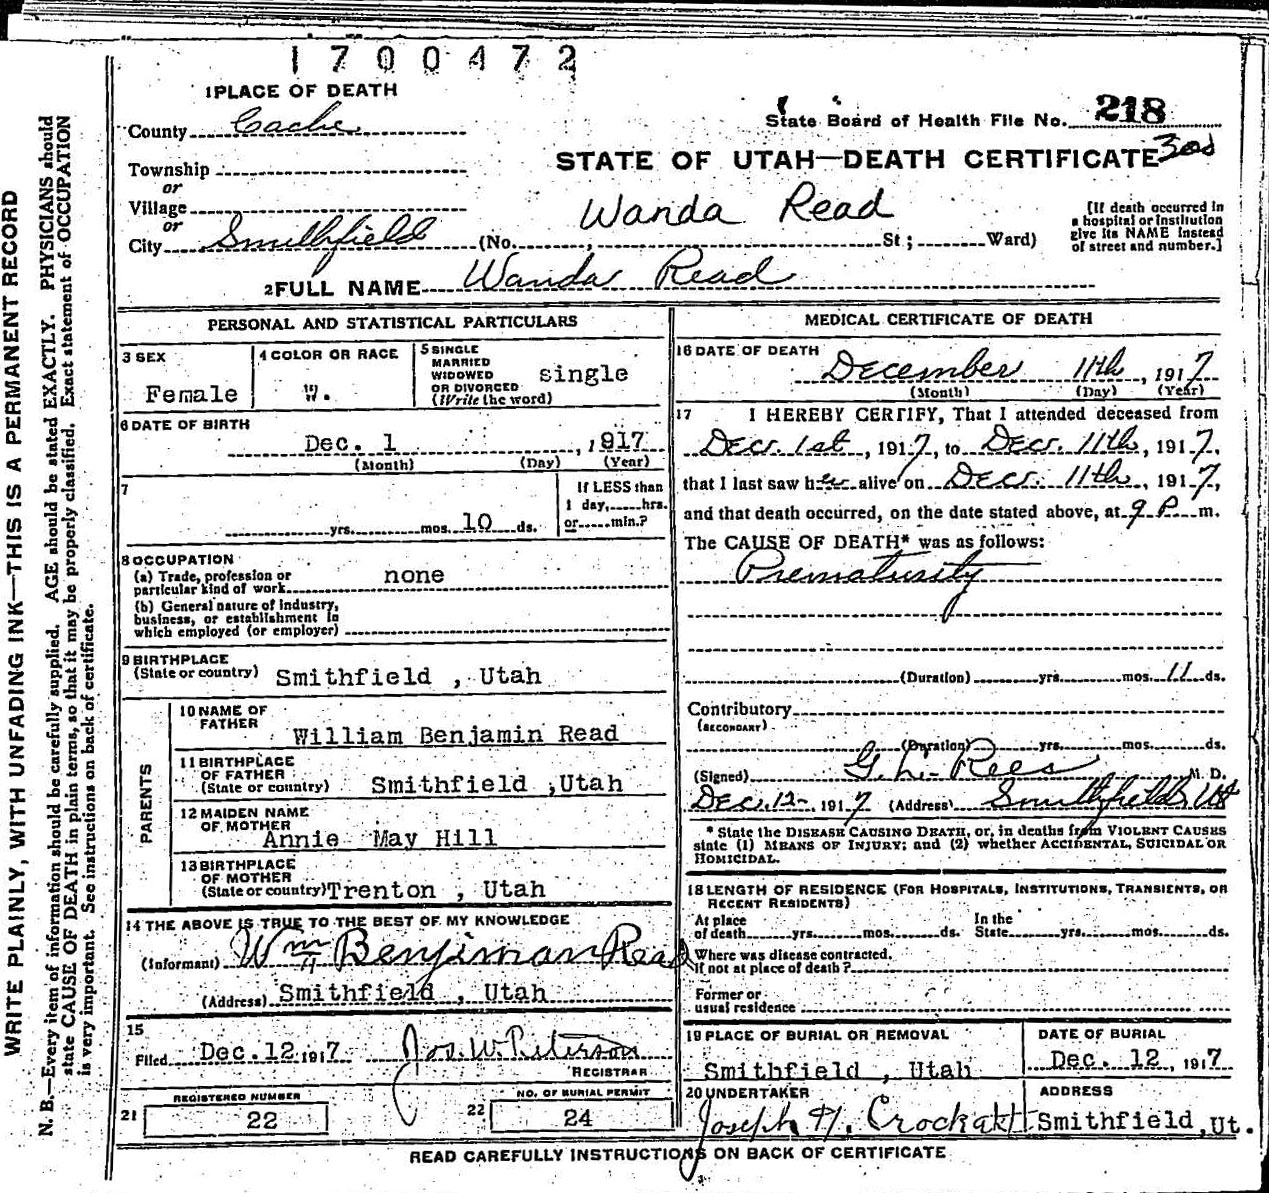 1700472
1 PLACE OF DEATH
County Cache
State Board of Health File No. 218
Township
STATE OF UTAH—DEATH CERTIFICATE
or
Village
Wanda Read
[If death occurred in a hospital or institution give its NAME instead of street and number.]
or
City Smithfield (No. ; St; Ward)
2 FULL NAME Wanda Read
PERSONAL AND STATISTICAL PARTICULARS
3 SEX
Female
4 COLOR OR RACE
W.
5 SINGLE
MARRIED
WIDOWED
OR DIVORCED
(Write the word)
single
6 DATE OF BIRTH
Dec. 1, 1917
(Month) (Day) (Year)
7
yrs. mos. 10 ds.
If LESS than
1 day, hrs.
or min.?
8 OCCUPATION
(a) Trade, profession or
particular kind of work none
(b) General nature of industry,
business, or establishment in
which employed (or employer)
9 BIRTHPLACE
(State or country) Smithfield , Utah
PARENTS
10 NAME OF
FATHER
William Benjamin Read
11 BIRTHPLACE
OF FATHER
(State or country) Smithfield ,Utah
12 MAIDEN NAME
OF MOTHER
Annie May Hill
13 BIRTHPLACE
OF MOTHER
(State or country) Trenton , Utah
14 THE ABOVE IS TRUE TO THE BEST OF MY KNOWLEDGE
(Informant) Wm Benjiman Read
(Address) Smithfield , Utah
15
Filed Dec. 12, 1917 Jos. W. Peterson
REGISTRAR
REGISTERED NUMBER
21 22
NO. OF BURIAL PERMIT
22 24
MEDICAL CERTIFICATE OF DEATH
16 DATE OF DEATH
December 11th, 1917
(Month) (Day) (Year)
17 I HEREBY CERTIFY, That I attended deceased from
Decr. 1st, 1917, to Decr. 11th, 1917,
that I last saw her alive on Decr. 11th, 1917,
and that death occurred, on the date stated above, at 9 P m.
The CAUSE OF DEATH* was as follows:
Prematurity
(Duration) yrs. mos. 11 ds.
Contributory
(SECONDARY)
(Duration) yrs. mos. ds.
(Signed) G. L. Rees M. D.
Dec. 12-, 1917 (Address) Smithfield, Ut
* State the DISEASE CAUSING DEATH, or, in deaths from VIOLENT CAUSES
state (1) MEANS OF INJURY; and (2) whether ACCIDENTAL, SUICIDAL OR
HOMICIDAL.
18 LENGTH OF RESIDENCE (FOR HOSPITALS, INSTITUTIONS, TRANSIENTS, OR
RECENT RESIDENTS)
At place
of death yrs. mos. ds.
In the
State yrs. mos. ds.
Where was disease contracted.
if not at place of death?
Former or
usual residence
19 PLACE OF BURIAL OR REMOVAL
Smithfield , Utah
DATE OF BURIAL
Dec. 12, 1917
20 UNDERTAKER
Joseph H. Crockatt
ADDRESS
Smithfield, Ut.
READ CAREFULLY INSTRUCTIONS ON BACK OF CERTIFICATE
WRITE PLAINLY, WITH UNFADING INK—THIS IS A PERMANENT RECORD
N. B.—Every item of information should be carefully supplied. AGE should be stated EXACTLY. PHYSICIANS should
state CAUSE OF DEATH in plain terms, so that it may be properly classified. Exact statement of OCCUPATION
is very important. See instructions on back of certificate.